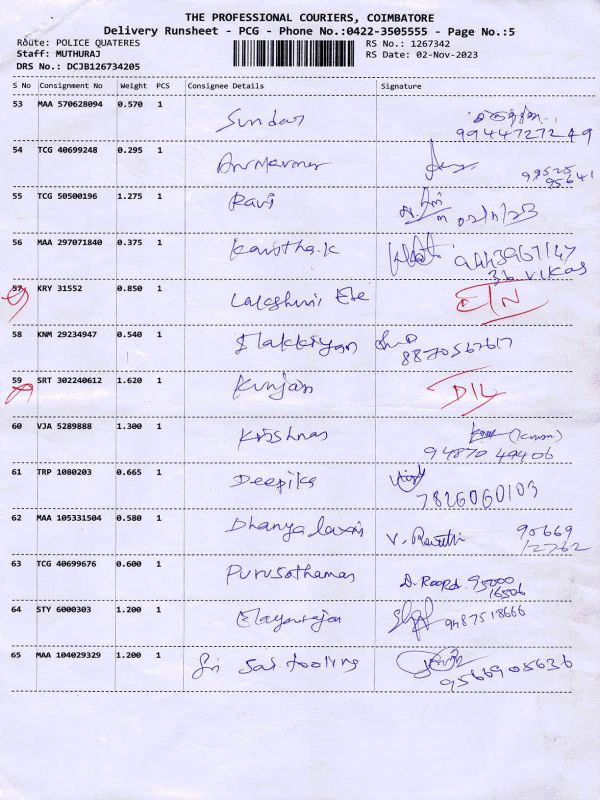 THE PROFESSIONAL COURIERS, COIMBATORE
Delivery Runsheet - PCG - Phone No.:0422-3505555 - Page No.:5
Route: POLICE QUATERES RS No.: 1267342
Staff: MUTHURAJ RS Date: 02-Nov-2023
DRS No.: DCJB126734205
S No Consignment No Weight PCS Consignee Details Signature
53 MAA 570628094 0.570 1 Sundar
9944727249
54 TCG 40699248 0.295 1
99525
95641
55 TCG 50500196 1.275 1 Ravi
02/11/23
56 MAA 297071840 0.375 1 Kavitha.K
9443967147
36 VIKAS
57 KRY 31552 0.850 1 Lakshmi Ete ETN
58 KNM 29234947 0.540 1 Elakkiyan
8870567617
59 SRT 302240612 1.620 1 Kunjan DIL
60 VJA 5289888 1.300 1 Krishnan
94870 49406
61 TRP 1080203 0.665 1 Deepika
7826060103
62 MAA 105331504 0.580 1 V. Revathi 90669
12762
63 TCG 40699676 0.600 1 Purusothaman 95000
16506
64 STY 6000303 1.200 1 Elayaraja 9487518666
65 MAA 104029329 1.200 1 Sri Sai tooling
9566905636